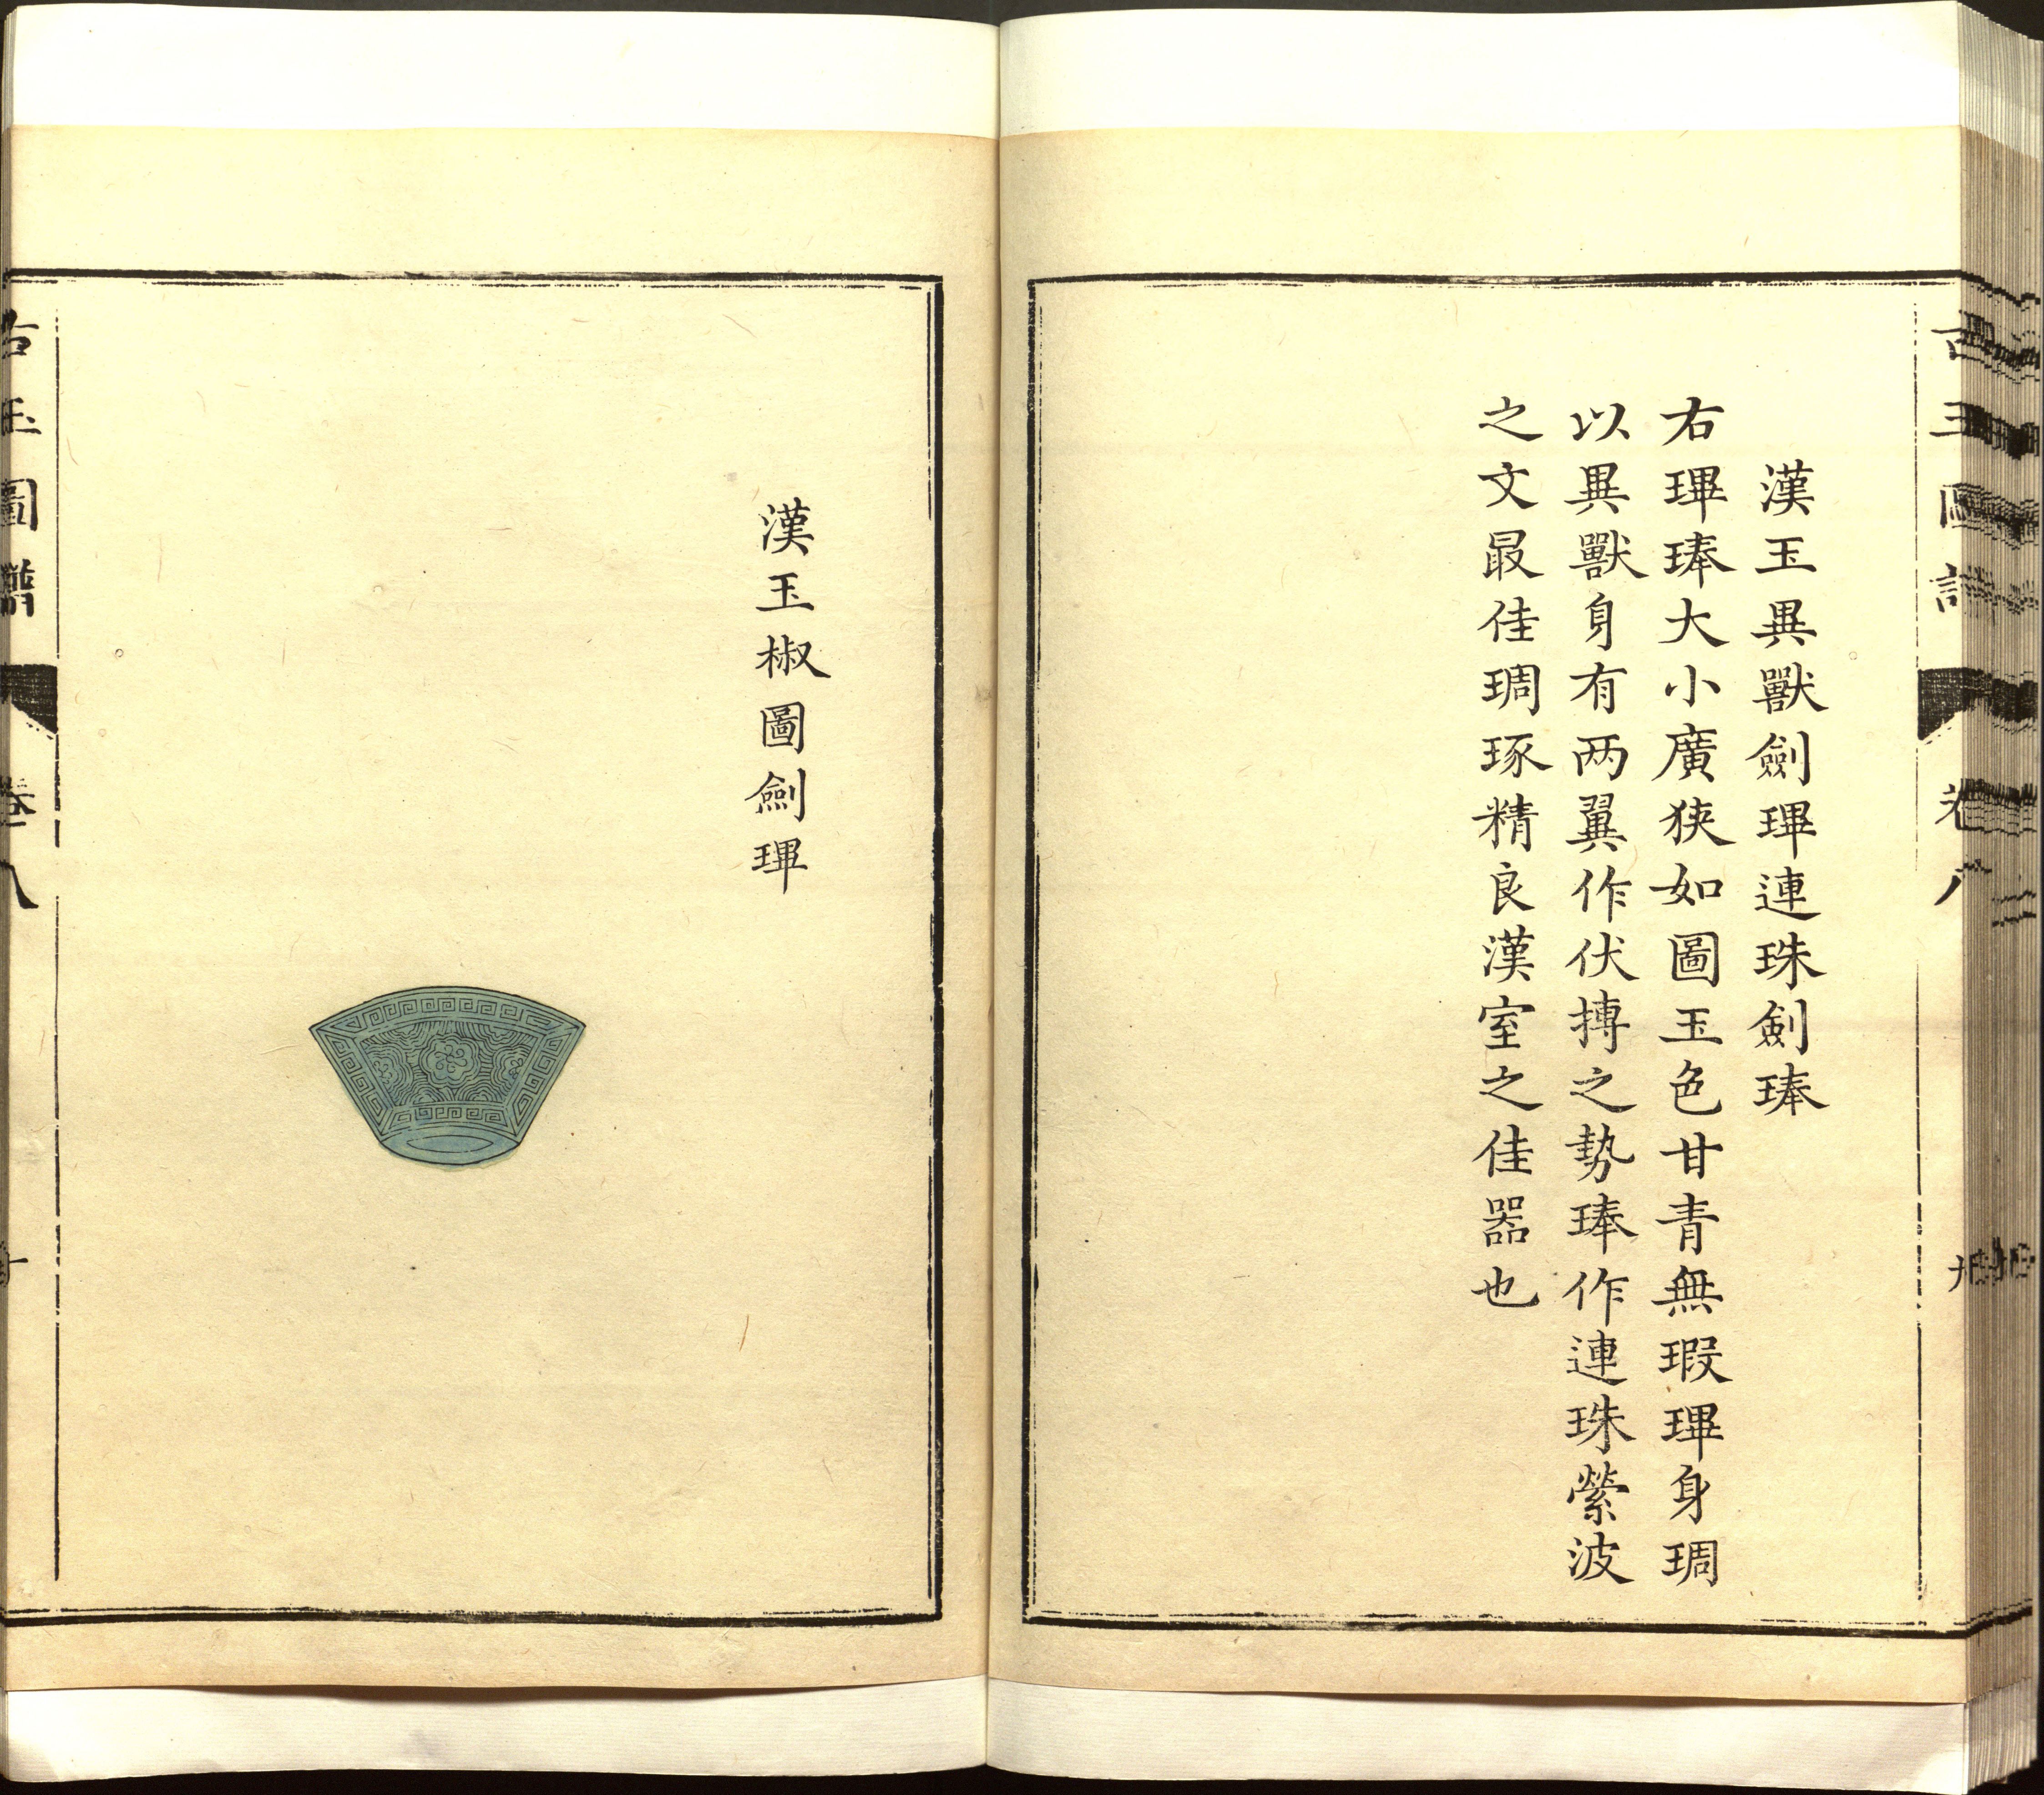 漢玉異獸劍琕連珠劍琫
右琕琫大小廣狹如圖玉色甘青無瑕琕身琱
以異獸身有两翼作伏搏之勢琫作連珠縈波
之文最佳琱琢精良漢室之佳器也
漢玉椒圖劍琕
古玉圖譜
卷八